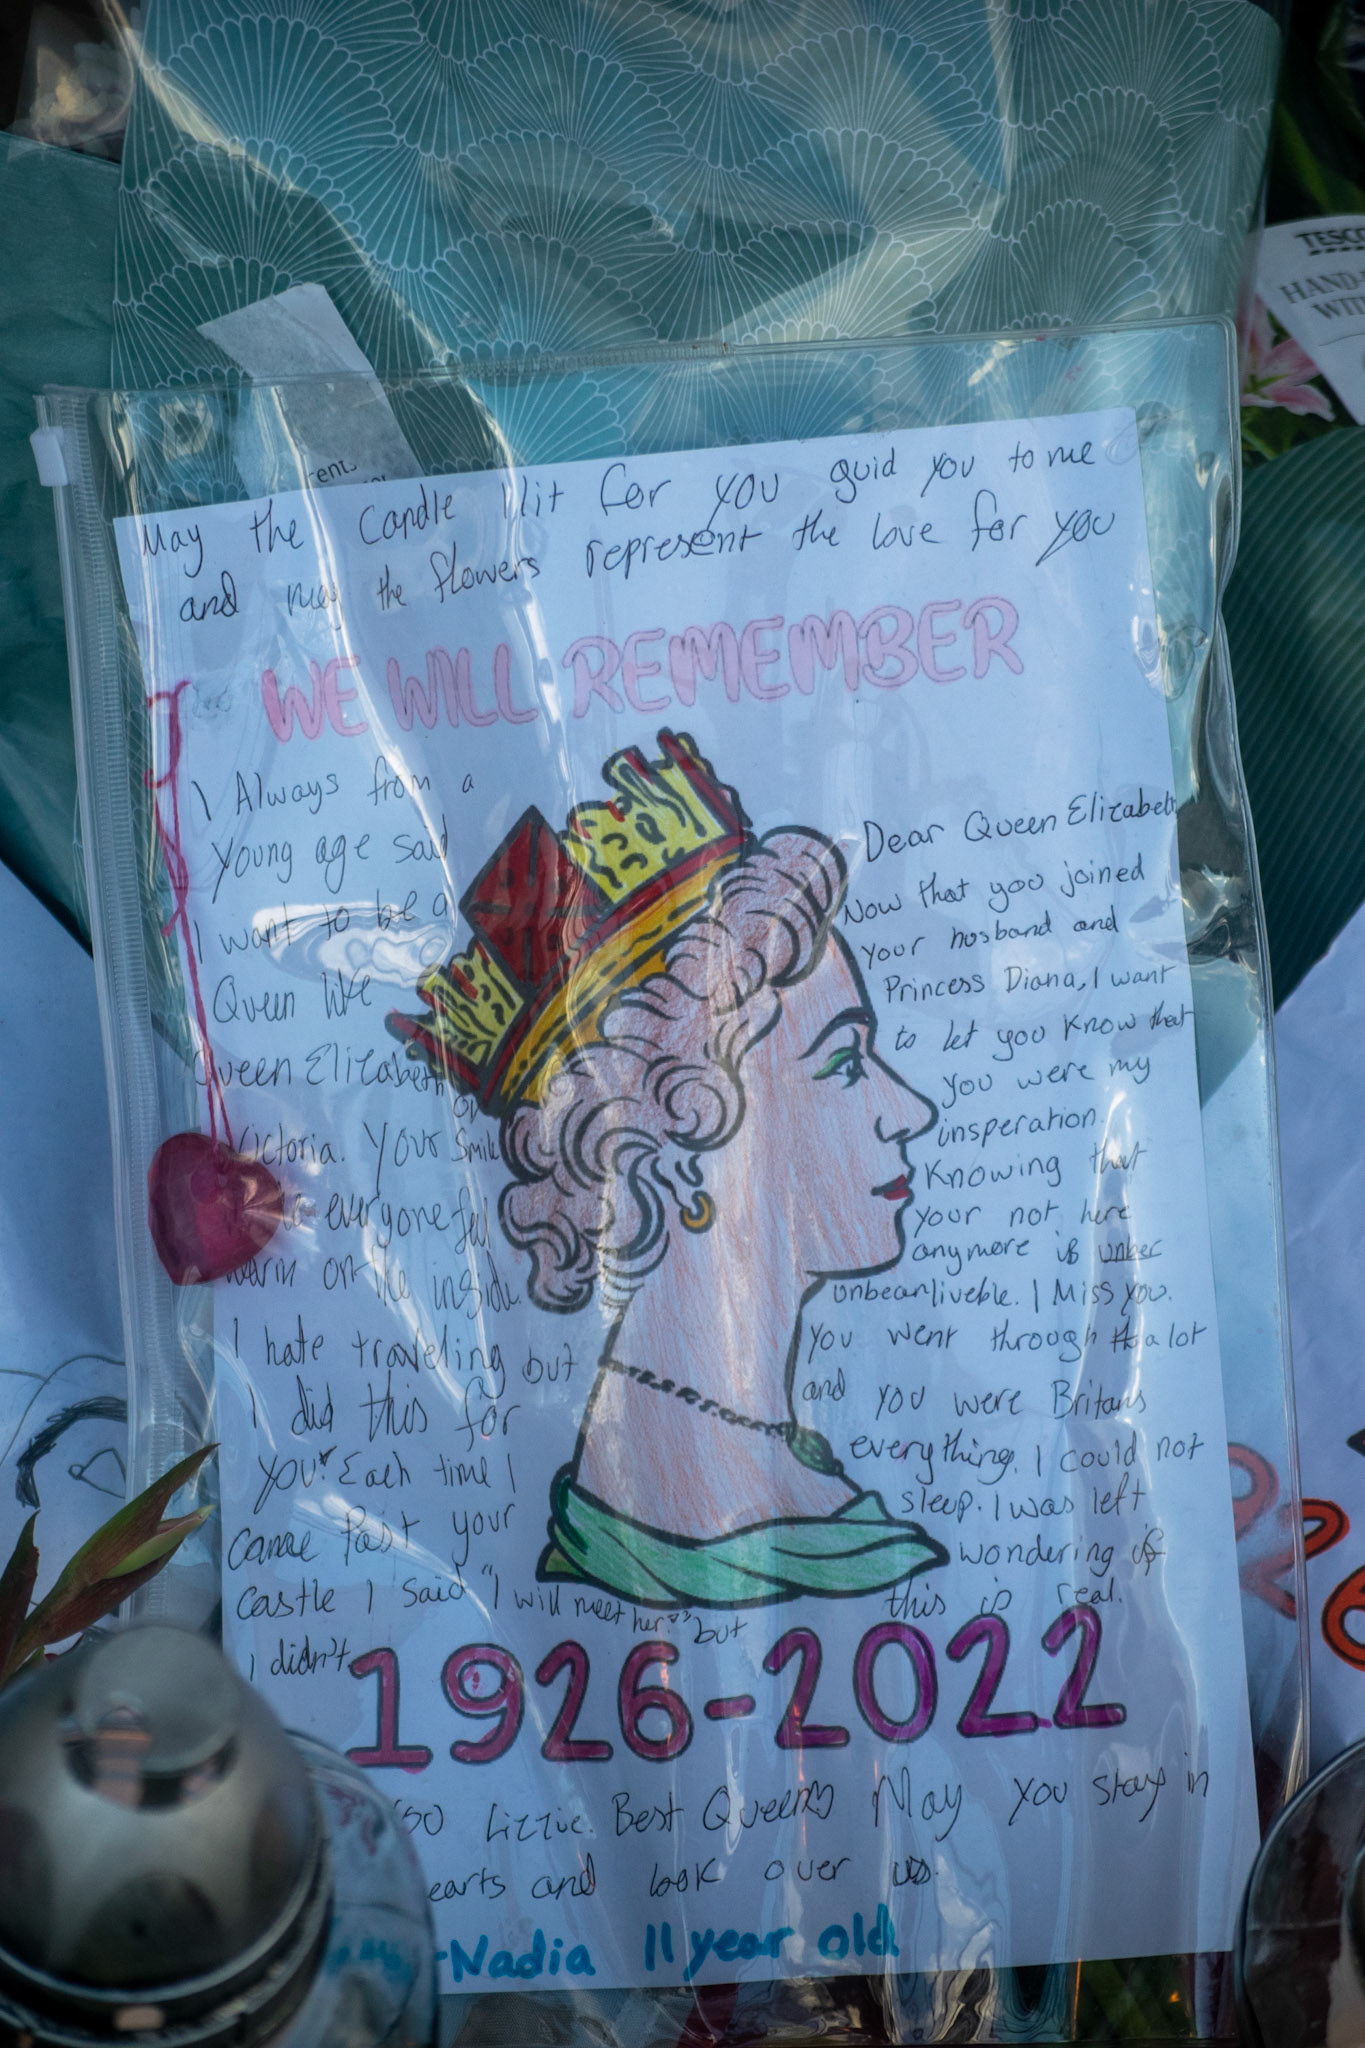 TESCO
HAND-
WIT
ents
May the Candle I lit for you guid you to me
and may the flowers represent the love for you
WE WILL REMEMBER
I Always from a
young age said
I want to be a
Queen like
Queen Elizabeth or
Victoria. Your smile
everyone feel
warm on the inside.
I hate traveling but
I did this for
you. Each time I
came Past your
castle I said "I will meet her" but
I didn't
Dear Queen Elizabeth
Now that you joined
your husband and
Princess Diana, I want
to let you know that
you were my
insperation.
Knowing that
your not here
anymore is
unbearliveble. I Miss you.
you went through a lot
and you were Britans
everything. I could not
sleep. I was left
wondering if
this is real.
1926-2022
so Lizzie. Best Queen May you stay in
earts and look over us.
-Nadia 11 year old